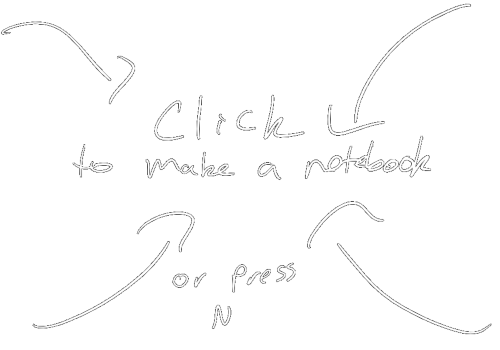 Click
to make a notebook
or press
N